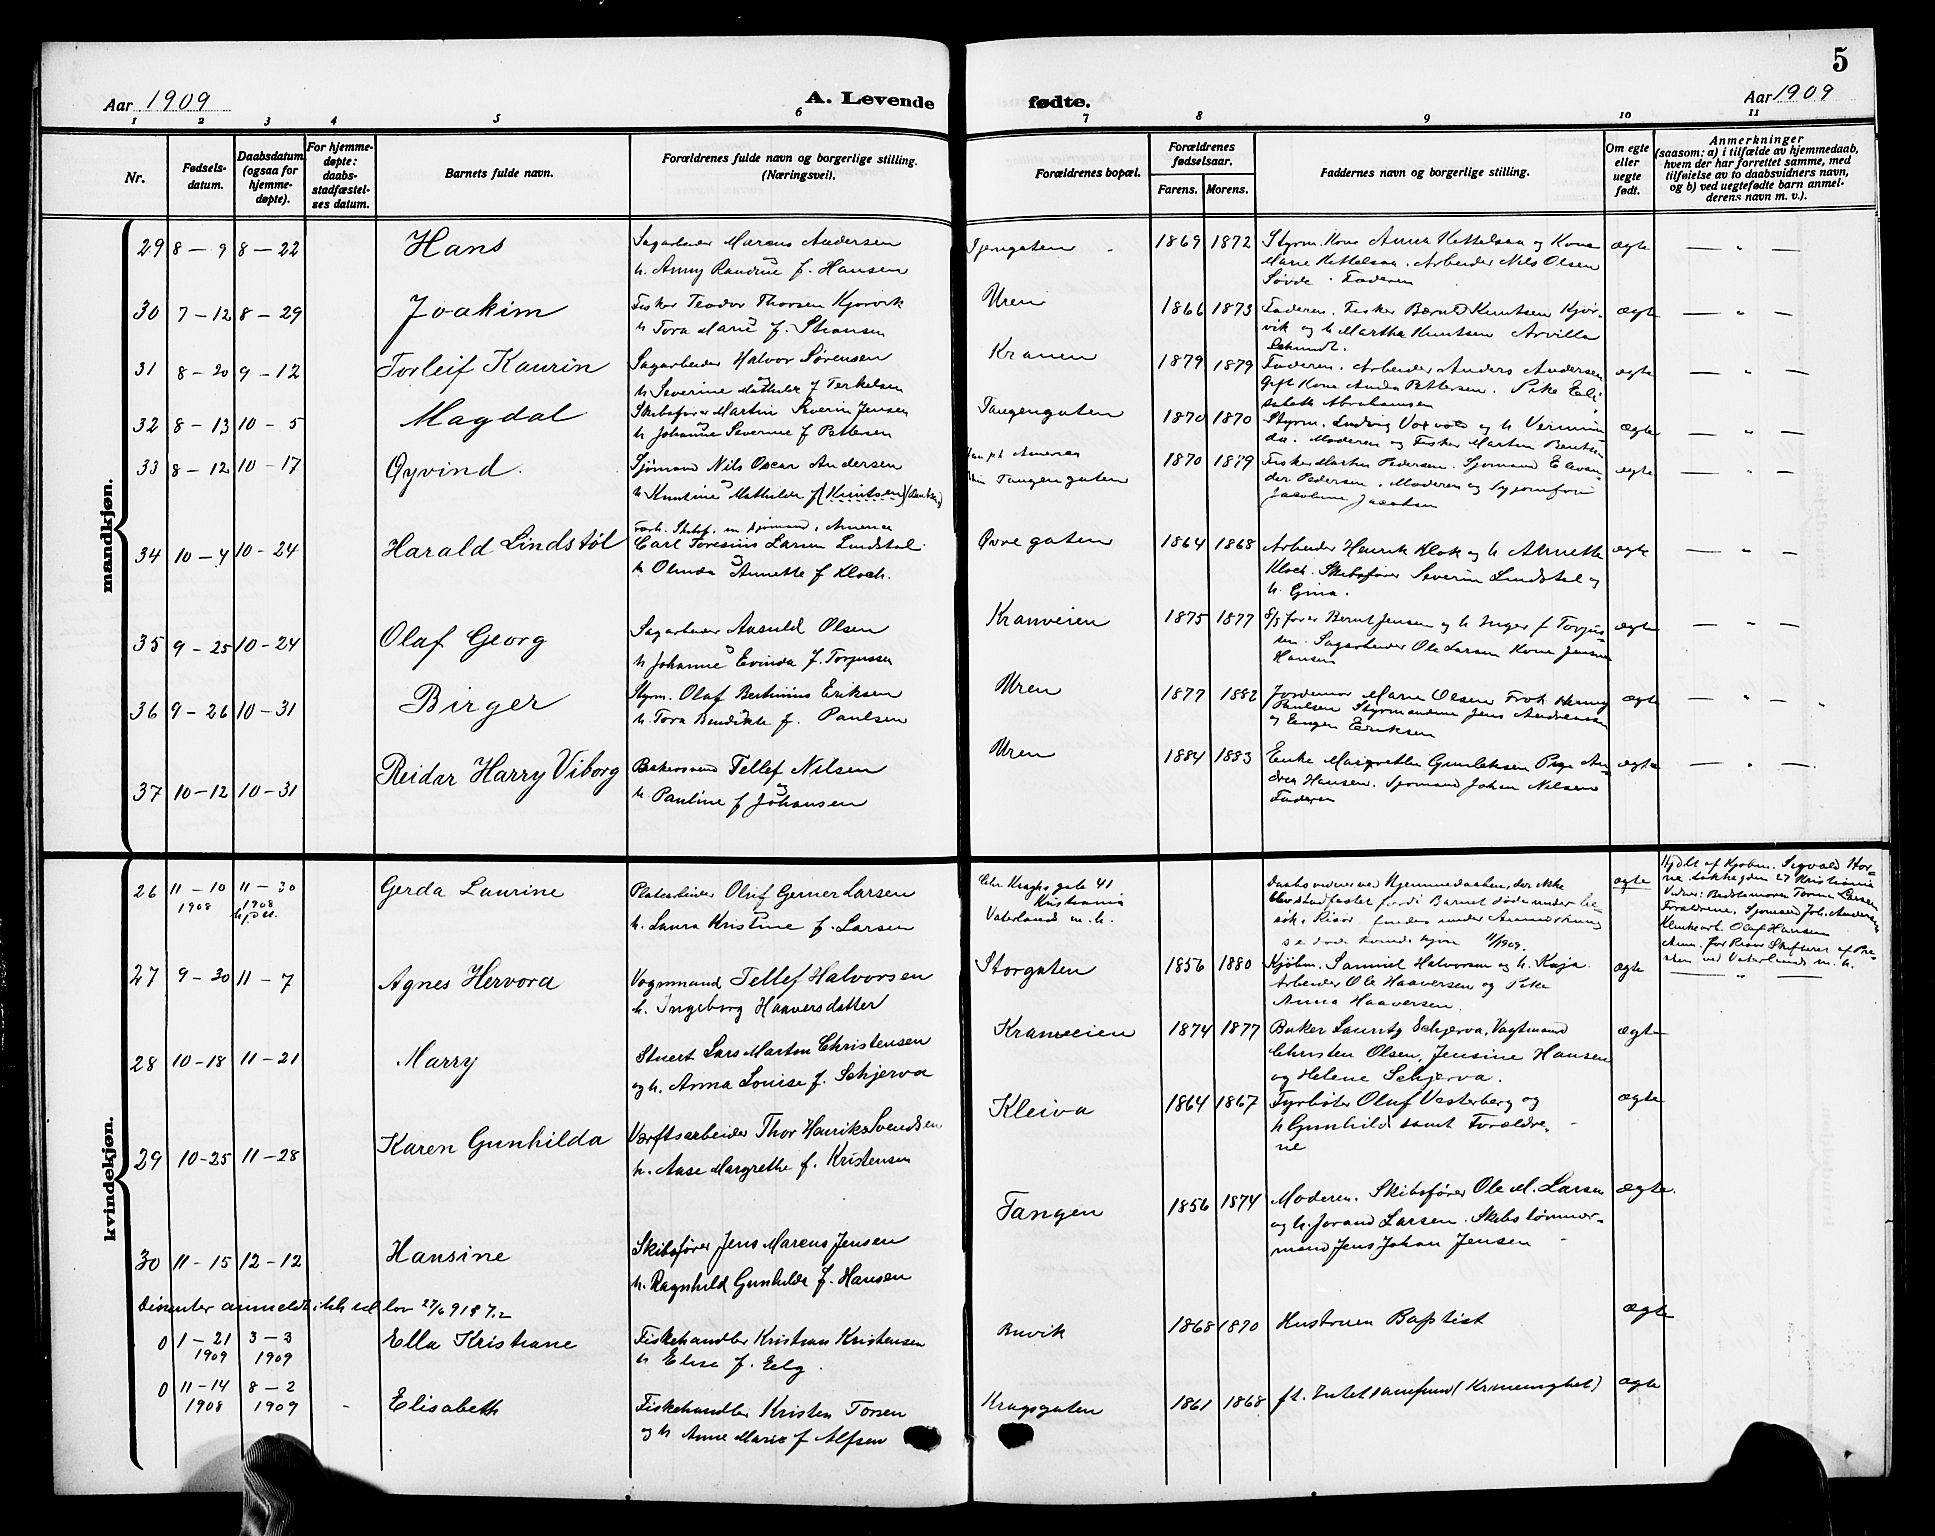 5
Aar 1909
A. Levende
fødte.
Aar 1909
1 2 3 4 5 6 7 8 9 10 11
Nr.
Fødsels-
datum.
Daabsdatum
(ogsaa for
hjemme-
døpte).
For hjemme-
døpte:
daabs-
stadfæstel-
ses datum.
Barnets fulde navn.
Forældrenes fulde navn og borgerlige stilling.
(Næringsvei).
Forældrenes bopæl.
Forældrenes
fødselsaar.
Farens. Morens.
Faddernes navn og borgerlige stilling.
Om egte
eller
uegte
født.
Anmerkninger
(saasom: a) i tilfælde av hjemmedaab,
hvem der har forrettet samme, med
tilføielse av to daabsvidners navn,
og b) ved uegtefødte barn anmel-
derens navn m. v.).
mandkjøn.
29 8-9 8-22 Hans
Sagarbeider Marcus Andersen
h. Anny Randine f. Hansen
1869 1872 Styrm. Kone Anna Kittelsen og Kone
Marie Kittelsen. Arbeider Nils Olsen
Søvde. Faderen
ægte — " —
30 7-12 8-29 Joakim
Fisker Teodor Thorsen Kjørvik
h Tora Marie f.
Uren 1866 1873 Faderen. Fisker Bernt Knutsen Kjør-
vik og h Martha Knutsen Arvilla
ægte — " —
31 8-20 9-12 Torleif Kaurin
Sagarbeider Halvor Sørensen
h Severine Mathilde f Terkelsen
Kranen 1879 1879 Faderen. Arbeider Anders Andersen
Gift Kone Anda Pettersen. Pike Eli-
sabeth Abrahamsen
ægte — " —
32 8-13 10-5 Magdal
Skibsfører Martin Severin Jensen
h Johanne Severine f Pettersen
Tangengaten 1870 1870 Styrm. Ludvig
Moderen og Fisker Martin Bentsen
ægte — " —
33 8-12 10-17 Øyvind.
Sjømand Nils Oscar Andersen
h Knutine Mathilde f (Knutsen)
Tangengaten
1870 1879 Fisker Martin Pedersen. Sjømand
Pedersen. Moderen og Syjomfru
Jacobine Jacobsen
ægte — " —
34 10-4 10-24 Harald Lindstøl
Carl Toresius Larsen Lindstøl.
h Olinda Annette f Kloch.
Øvregaten 1864 1868 Arbeider Henrik Klok og h Annette
Kloch. Skibsfører Severin Lindstøl og
h. Gina.
ægte — " —
35 9-25 10-24 Olaf Georg
Sagarbeider Aanuld Olsen
h Johanne Evinda f. Torjussen
Kranveien 1875 1877 S/s fører Bernt Jensen og h Inger f Torjus-
sen. Sagarbeider Ole Larsen Kone Jensine
Hansen
ægte — " —
36 9-26 10-31 Birger
Styrm. Olaf Bertinius Eriksen
h. Tora Bendikte f. Paulsen
Uren 1877 1882 Jordemor Marie Olsen Frøk Hanny
Paulsen Styrmændene Jens Andreassen
og Eugen Eriksen
ægte — " —
37 10-12 10-31 Reidar Harry Viborg
Bakersvend Tellef Nilsen
h. Pauline f Johansen
Uren 1884 1883 Enke Margrethe Gundeksen Pige An-
drea Hansen. Sjømand Johan Nilsen
Faderen
ægte — " —
kvindekjøn.
26 11-10 1908 11-30 1908 Gerda Laurine
Platearbeider Oluf Gerner Larsen
h. Laura Kristine f. Larsen
Chr. Kroghs gate 41
Kristiania
Vaterlands m. h.
Daabsvidner ved Hjemmedaaben, der ikke
blev stadfæstet fordi Barnet døde under be-
søk i Risør, findes under Anmerkning
se døde kvindekjøn 11/1909.
ægte
Hjdbt af Kjøbm. Sigvald Hor-
27 Kristiania
Vidner: Bedstemoren Torine Larsen
Forældrene, Sjømand Joh. Andersen
Olaf Hansen
Anm. for Risør Skifteret af Pre-
sten ved Vaterlands m. h.
27 9-30 11-7 Agnes Hervora
Vognmand Tellef Halvorsen
h. Ingeborg Haaversdatter
Storgaten 1856 1880 Kjøbm. Samuel Halvorsen og h. Kaja.
Arbeider Ole Haaversen og Pike
Anna Haaversen.
ægte — " —
28 10-18 11-21 Marry
Stuert Lars Martin Christensen
og h. Anna Louise f. Schjerva
Kranveien 1874 1877 Baker Lauritz Schjerva, Vagtmand
Christen Olsen, Jensine Hansen
og Helene Schjerva.
ægte
29 10-25 11-28 Karen Gunhilda
Værftsarbeider Thor Henrik Svendsen
h. Aase Margrethe f. Kristensen
Kleiva 1864 1867 Fyrbøter Oluf Vesterberg og
h Gunhild samt Forældre-
ne
ægte
30 11-15 12-12 Hansine
Skibsfører Jens Marcus Jensen
h. Ragnhild Gunhilda f. Hansen
Tangen 1856 1874 Moderen. Skibsfører Ole M. Larsen
og h. Jorand Larsen. Skibstømmer-
mand Jens Johan Jensen
ægte.
Dissenter anmeldt
0 1-21 1909 3-3 1909 Ella Kristiane
Fiskehandler Kristian Kristensen
h Elise f. Eelg.
Buvik 1868 1870 Hustruen Baptist
ægte
0 11-14 1908 8-2 1909 - Elisabeth
Fiskehandler Kristen Torsen
og h Anne Marie f Alfsen
Kragsgaten 1861 1868
ægte